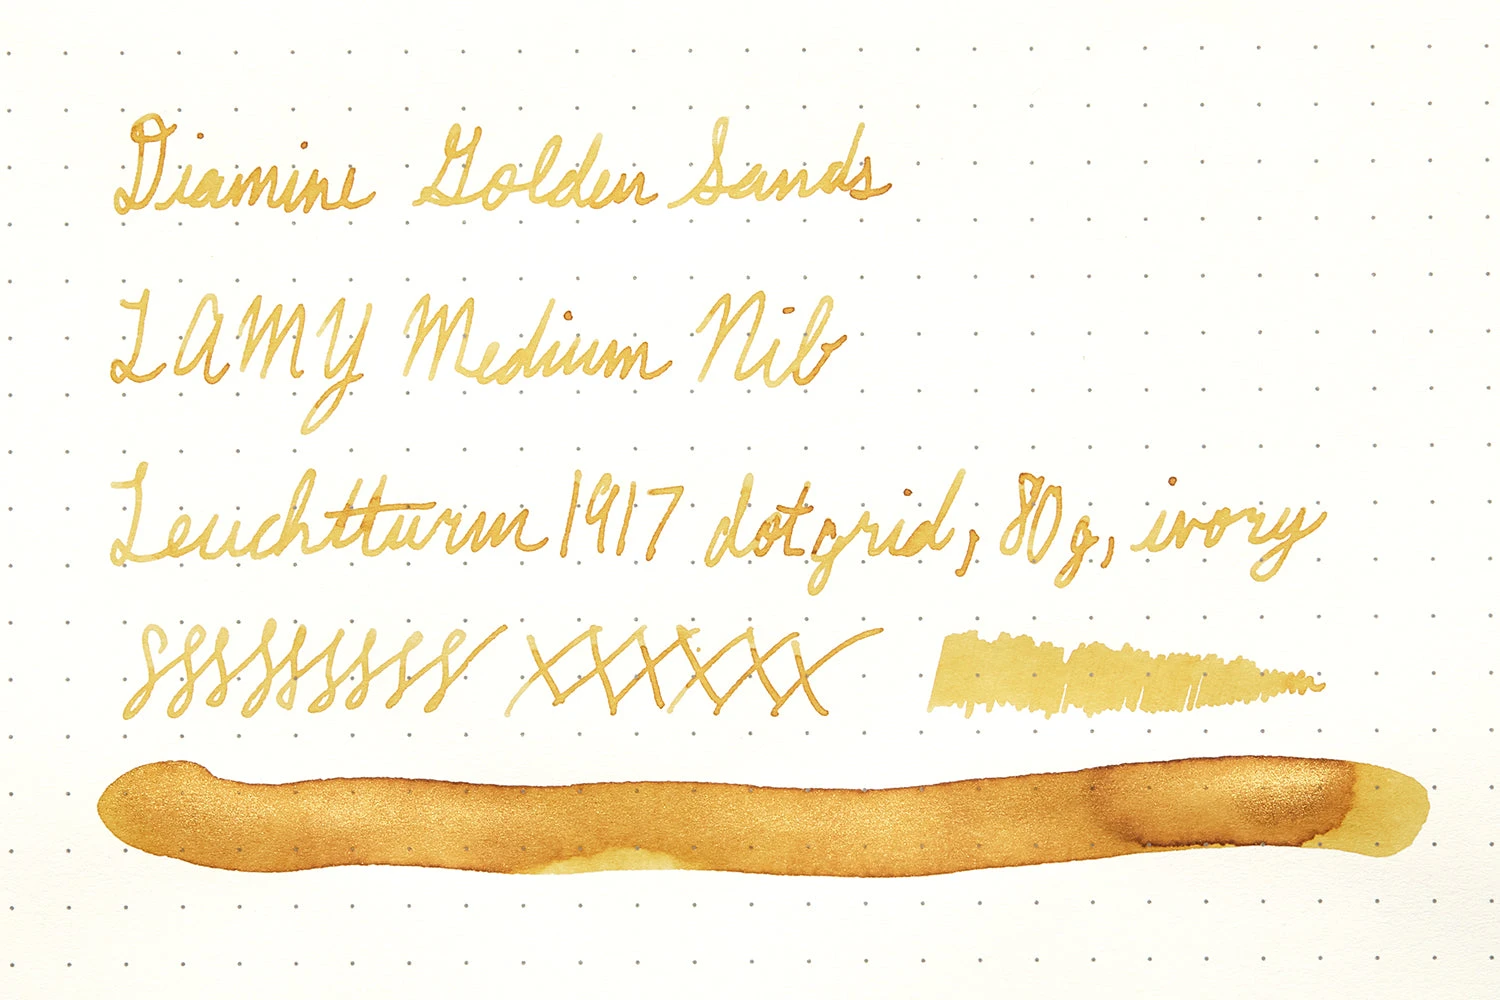 Diamine Golden Sands
LAMY Medium Nib
Leuchtturm 1917 dot grid, 80g, ivory